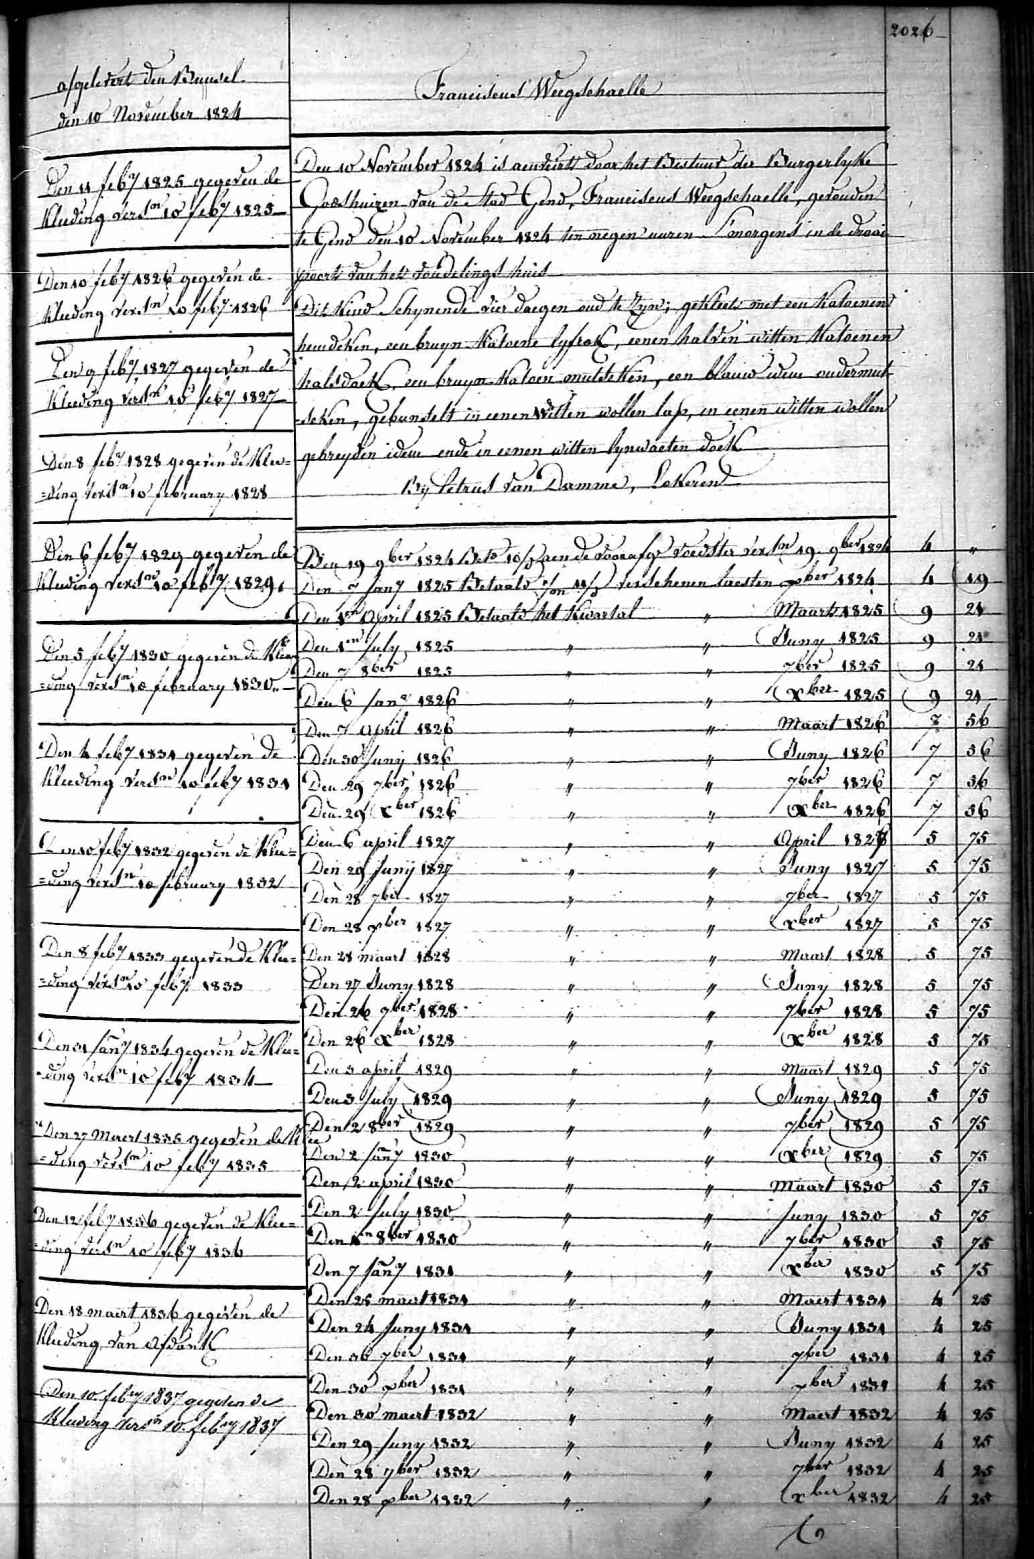 2026
afgelevert den Bussel
den 10 November 1824
Den 11 feb.y 1825 gegeven de
kleeding verst.n 10 feb.y 1825
Den 10 feb.y 1826 gegeven de
kleeding verst.n 10 feb.y 1826
Den 9 feb.y 1827 gegeven de
kleeding verst.n 10 feb.y 1827
Den 8 feb.y 1828 gegeven de klee=
=ding verst.n 10 february 1828
Den 6 feb.y 1829 gegeven de
kleeding verst.n 10 feb.y 1829
Den 5 feb.y 1830 gegeven de klee
=ding verst.n 10 february 1830
Den 4 feb.y 1831 gegeven de
kleeding verst.n 10 feb.y 1831
Den 10 feb.y 1832 gegeven de klee=
=ding verst.n 10 february 1832
Den 8 feb.y 1833 gegeven de klee=
=ding verst.n 10 feb.y 1833
Den 31 jan.y 1834 gegeven de klee=
=ding verst.n 10 feb.y 1834
Den 27 maert 1835 gegeven de klee
=ding verst.n 10 feb.y 1835
Den 12 feb.y 1836 gegeven de klee=
=ding verst.n 10 feb.y 1836
Den 18 maert 1836 gegeven de
kleeding van afdank
Den 10 feb.y 1837 gegeven de
kleeding verst.n 10 feb.y 1837
Franciscus Weegschaelle
Den 10 November 1824 is aenveirt door het Bestuur der Burgerlyke
Godshuizen van de Stad Gend, Franciscus Weegschaelle, gevonden
te Gend den 10 November 1824 ten negen uuren smorgens in de draai
poorte van het vondelings huis
Dit kind schynende vier daegen oud te zyn; gekleet met een katoenen
hemdeken, een bruyn katoene lyfrok, eenen halven witten katoenen
halsdoek, een bruyn katoen mutsken, een blauw idem ondermut
=seken, gebundelt in eenen witten wollen lap, en eenen witten wollen
gebreyden idem ende in eenen witten lynwaeten doek
By Petrus Van Damme, Lokeren
Den 19 9ber 1824 Bet. 10/ aen de voorafg. voedster verst.n 19 9ber 1824 4 "
Den jan.y 1825 Betaald verschenen laesten xber 1824 4 19
Den 1en April 1825 Betaald het kwartal " Maart 1825 9 21
Den 1en july 1825 " " Juny 1825 9 21
Den 7 8ber 1825 " " 7ber 1825 9 21
Den 6 jan.y 1826 " " xber 1825 9 21
Den 7 April 1826 " " Maart 1826 7 56
Den 30 juny 1826 " " Juny 1826 7 56
Den 29 7ber 1826 " " 7ber 1826 7 56
Den 29 xber 1826 " " xber 1826 7 56
Den 6 april 1827 " " April 1827 5 75
Den 29 juny 1827 " " Juny 1827 5 75
Den 28 7ber 1827 " " 7ber 1827 5 75
Den 28 xber 1827 " " xber 1827 5 75
Den 28 maart 1828 " " Maart 1828 5 75
Den 27 Juny 1828 " " Juny 1828 5 75
Den 26 7ber 1828 " " 7ber 1828 5 75
Den 26 xber 1828 " " xber 1828 5 75
Den 3 april 1829 " " Maart 1829 5 75
Den 3 july 1829 " " Juny 1829 5 75
Den 2 8ber 1829 " " 7ber 1829 5 75
Den 2 jan.y 1830 " " xber 1829 5 75
Den 2 april 1830 " " Maart 1830 5 75
Den 2 july 1830 " " juny 1830 5 75
Den 1en 8ber 1830 " " 7ber 1830 5 75
Den 7 jan.y 1831 " " xber 1830 5 75
Den 25 maart 1831 " " Maert 1831 4 25
Den 24 juny 1831 " " Juny 1831 4 25
Den 30 7ber 1831 " " 7ber 1831 4 25
Den 30 xber 1831 " " xber 1831 4 25
Den 30 maert 1832 " " Maert 1832 4 25
Den 29 juny 1832 " " Juny 1832 4 25
Den 28 7ber 1832 " " 7ber 1832 4 25
Den 28 xber 1832 " " xber 1832 4 25